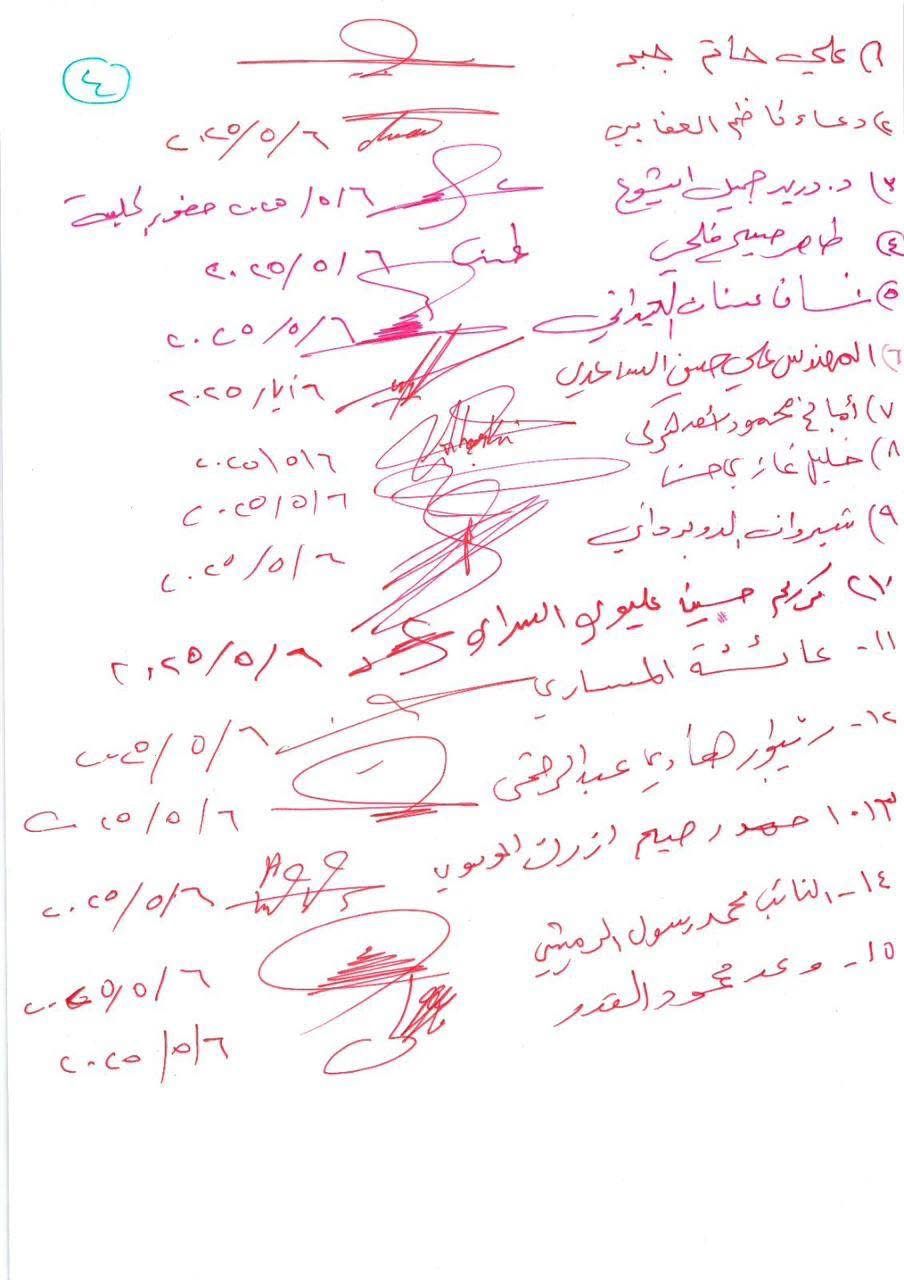 ٤
١) علي حاتم جبر
٢) دعاء كاظم ٢٠٢٥/٥/٦
٣) د. دريد جميل ايشوع ٢٠٢٥/٥/٦ حضور الجلسة
٤) طاهر صبيح فلحي ٢٠٢٥/٥/٦
٥) عدنان العيداني ٢٠٢٥/٥/٦
٦) المهندس علي حسن الساعدي ٦ ايار ٢٠٢٥
٧) محمود ٢٠٢٥/٥/٦
٨) خليل غازي حسن ٢٠٢٥/٥/٦
٩) شيروان الدوبرداني ٢٠٢٥/٥/٦
١٠) كريم حسين عليوي السراي ٢٠٢٥/٥/٦
١١- عائشة المساري ٢٠٢٥/٥/٦
١٢- ريبوار هادي عبدالرحمن ٢٠٢٥/٥/٦
١٣- رحيم ازرق الموسوي ٢٠٢٥/٥/٦
١٤- النائب محمد رسول ٢٠٢٥/٥/٦
١٥- وعد محمود القدو ٢٠٢٥/٥/٦